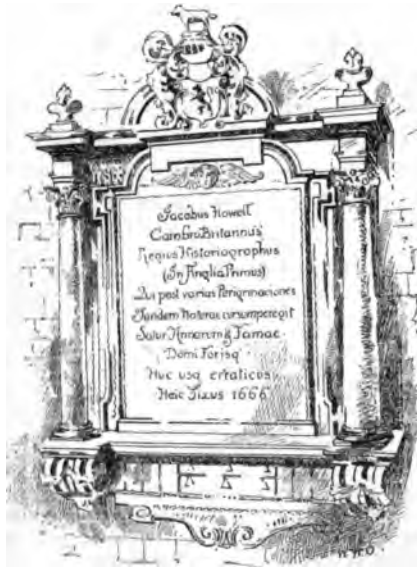 Jacobus Howell
Cambro Britannus
Regius Historiographus
(In Anglia Primus)
Qui post varias Peregrinaciones
Tandem Naturae cursum peregit
Satur Annorum & Famae
Domi Forisq
Huc usq erraticus
Heic Fixus 1666